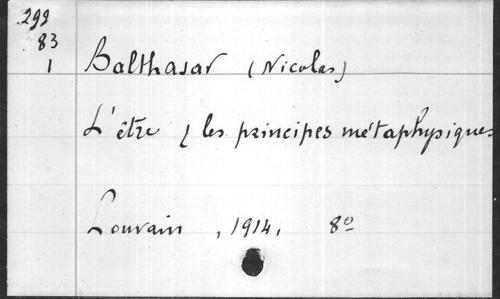 299
83
1
Balthasar (Nicolas)
L'être & les principes métaphysiques
Louvain, 1914, 8º